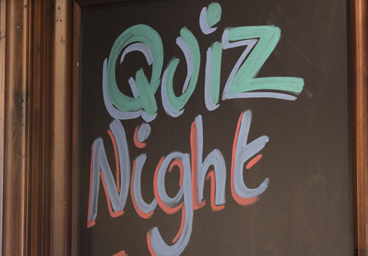 Quiz
Night